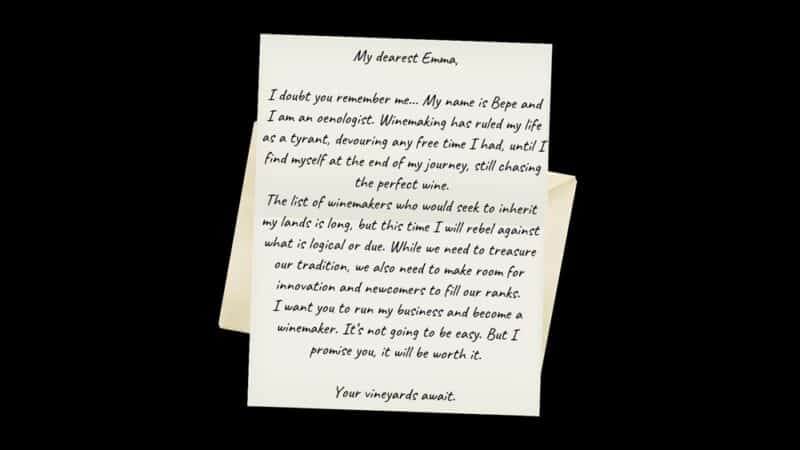 My dearest Emma,
I doubt you remember me... My name is Bepe and
I am an oenologist. Winemaking has ruled my life
as a tyrant, devouring any free time I had, until I
find myself at the end of my journey, still chasing
the perfect wine.
The list of winemakers who would seek to inherit
my lands is long, but this time I will rebel against
what is logical or due. While we need to treasure
our tradition, we also need to make room for
innovation and newcomers to fill our ranks.
I want you to run my business and become a
winemaker. It's not going to be easy. But I
promise you, it will be worth it.
Your vineyards await.